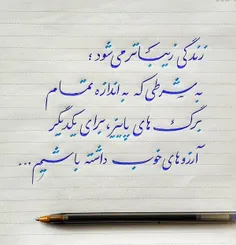 زندگی زیباتر می شود ؛
به شرطی که به اندازه تمام
برگ های پاییز، برای یکدیگر
آرزوهای خوب داشته باشیم...